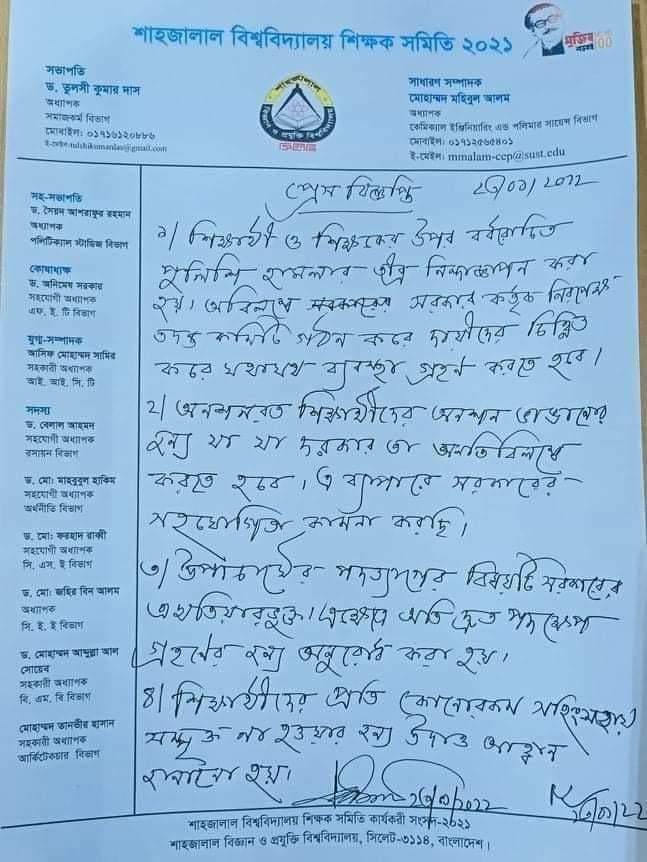 শাহজালাল বিশ্ববিদ্যালয় শিক্ষক সমিতি ২০২১
মুজিব
শতবর্ষ 100
সভাপতি
ড. তুলসী কুমার দাস
অধ্যাপক
সমাজকর্ম বিভাগ
মোবাইল: ০১৭১৬১২০৮৮৬
ই-মেইল: tulshikumardas@gmail.com
শাহজালাল
বিজ্ঞান ও প্রযুক্তি বিশ্ববিদ্যালয়
সাধারণ সম্পাদক
মোহাম্মদ মহিবুল আলম
অধ্যাপক
কেমিক্যাল ইঞ্জিনিয়ারিং এন্ড পলিমার সায়েন্স বিভাগ
মোবাইল: ০১৭১২৫৬৫৪০১
ই-মেইল: mmalam-cep@sust.edu
সহ-সভাপতি
ড. সৈয়দ আশরাফুর রহমান
অধ্যাপক
পলিটিক্যাল স্টাডিজ বিভাগ
কোষাধ্যক্ষ
ড. অনিমেষ সরকার
সহযোগী অধ্যাপক
এফ. ই. টি বিভাগ
যুগ্ম-সম্পাদক
আসিফ মোহাম্মদ সামির
সহকারী অধ্যাপক
আই. আই. সি. টি
সদস্য
ড. বেলাল আহমদ
সহযোগী অধ্যাপক
রসায়ন বিভাগ
ড. মো: মাহবুবুল হাকিম
সহযোগী অধ্যাপক
অর্থনীতি বিভাগ
ড. মো: ফরহাদ রাব্বী
সহযোগী অধ্যাপক
সি. এস. ই বিভাগ
ড. মো: জহির বিন আলম
অধ্যাপক
সি. ই. ই বিভাগ
ড. মোহাম্মদ আব্দুল্লা আল
সোয়েব
সহকারী অধ্যাপক
বি. এম. বি বিভাগ
মোহাম্মদ তানভীর হাসান
সহকারী অধ্যাপক
আর্কিটেকচার বিভাগ
প্রেস বিজ্ঞপ্তি /০১/২০২২
১/ শিক্ষার্থী ও শিক্ষকের উপর বর্বরোচিত
পুলিশি হামলার তীব্র নিন্দাজ্ঞাপন করা
হয়। অবিলম্বে সরকার কর্তৃক নিরপেক্ষ
তদন্ত কমিটি গঠন করে দায়ীদের চিহ্নিত
করে যথাযথ ব্যবস্থা গ্রহন করতে হবে।
২/ অনশনরত শিক্ষার্থীদের অনশন ভাঙানোর
জন্য যা যা দরকার তা অনতিবিলম্বে
করতে হবে। এ ব্যাপারে সরকারের
সহযোগিতা কামনা করছি।
৩/ উপাচার্যের পদত্যাগের বিষয়টি সরকারের
এখতিয়ারভুক্ত। এক্ষেত্রে অতি দ্রুত পদক্ষেপ
গ্রহণের জন্য অনুরোধ করা হয়।
৪/ শিক্ষার্থীদের প্রতি কোনোরকম সহিংসতায়
সম্পৃক্ত না হওয়ার জন্য উদাত্ত আহ্বান
জানানো হয়।
শাহজালাল বিশ্ববিদ্যালয় শিক্ষক সমিতি কার্যকরী সংসদ-২০২১
শাহজালাল বিজ্ঞান ও প্রযুক্তি বিশ্ববিদ্যালয়, সিলেট-৩১১৪, বাংলাদেশ।